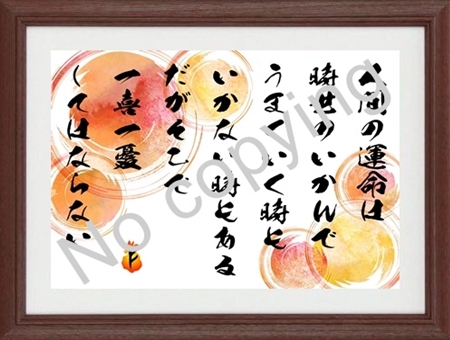 人間の運命は
時世のいかんで
うまくいく時も
いかない時もある
だがそこで
一喜一憂
してはならない
No copying